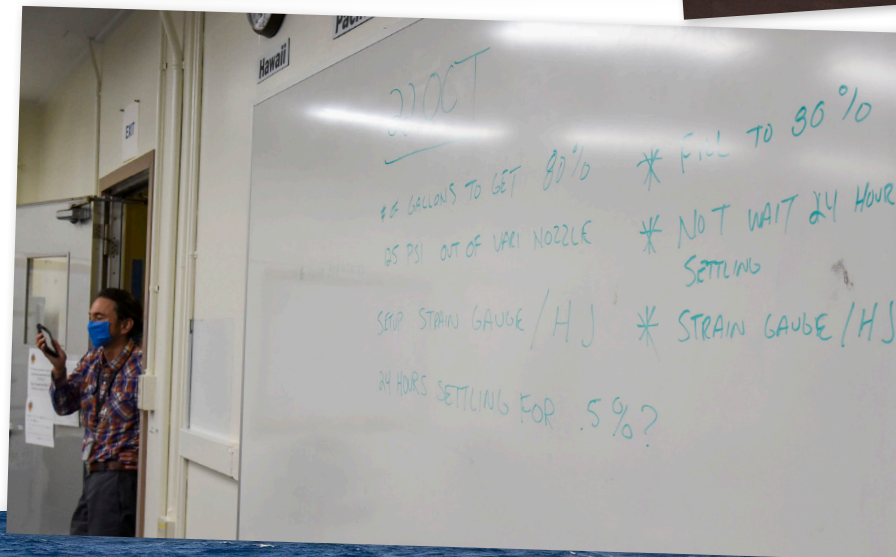 Hawaii
EXIT
22 OCT
# OF GALLONS TO GET 80%
25 PSI OUT OF VARI NOZZLE
SETUP STRAIN GAUGE / HJ
24 HOURS SETTLING FOR .5%?
* FILL TO 80%
* NOT WAIT 24 HOUR
SETTLING
* STRAIN GAUGE / HJ